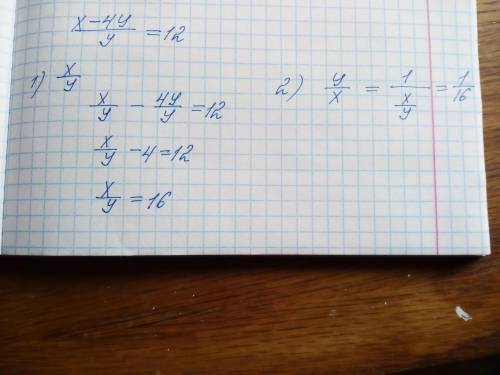 (x-4y)/y = 12
1) x/y
x/y - 4y/y = 12
x/y - 4 = 12
x/y = 16
2) y/x = 1/(x/y) = 1/16